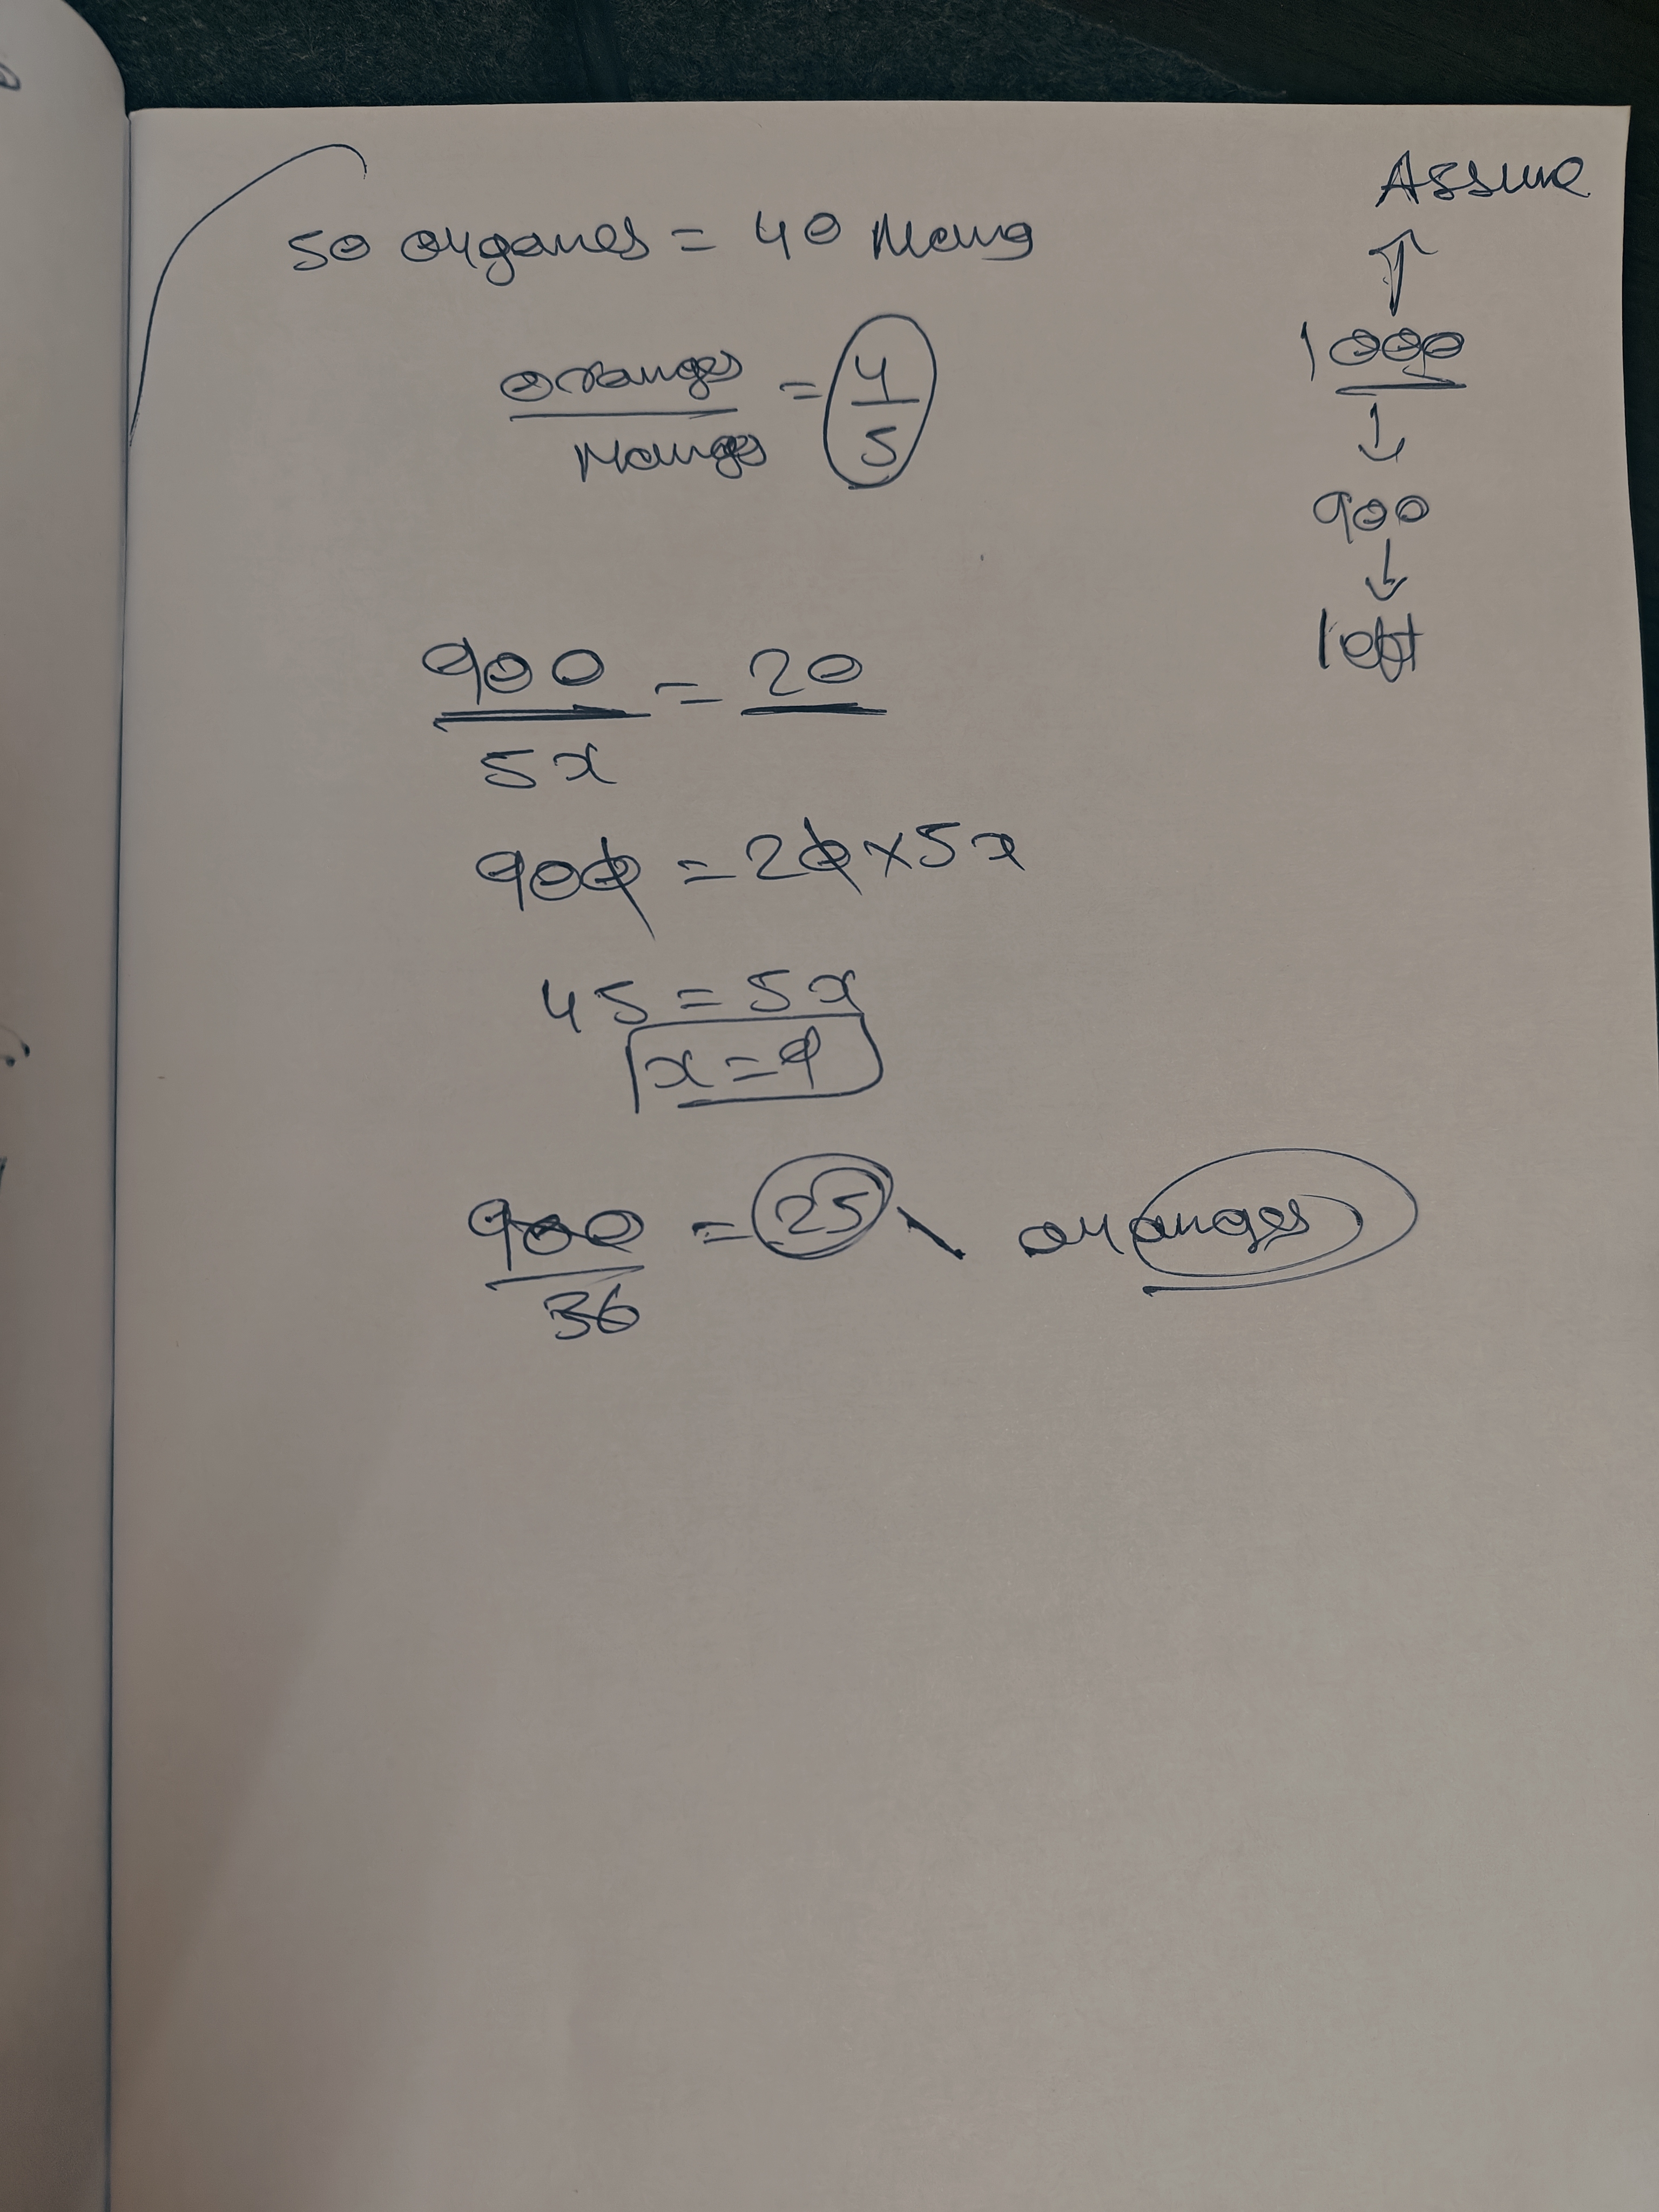 Assume
50 organes = 40 Mang
oranges / Manges = 4/5
1000
900
left
900 / 5x = 20
900 = 20 × 5x
45 = 5x
x = 9
900 / 36 = 25 oranges